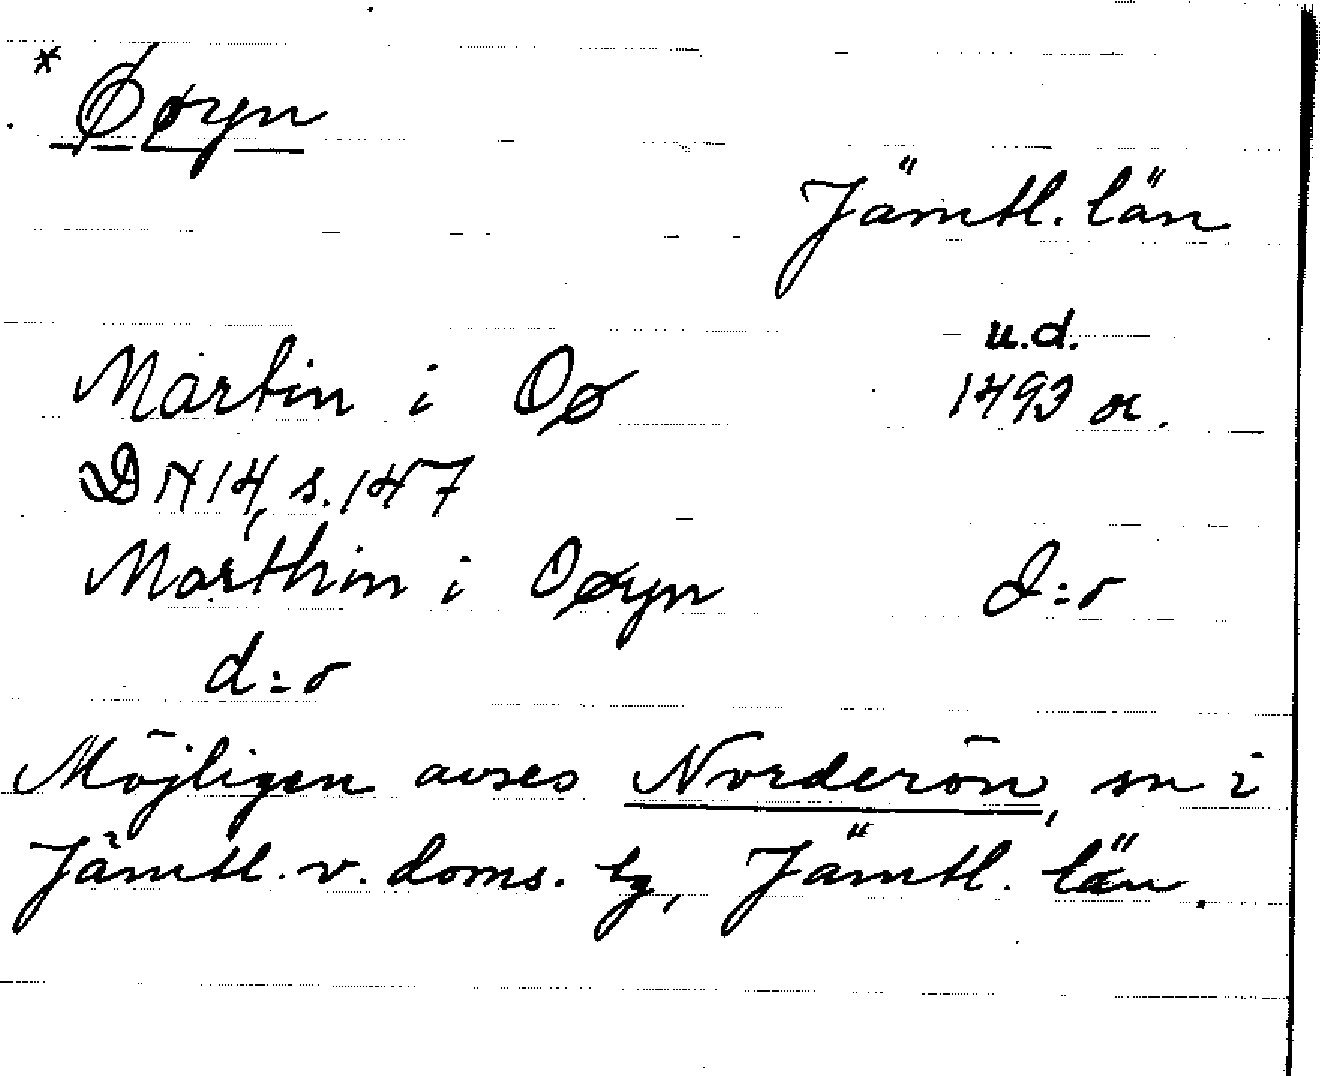 * Øøryn
Jämtl. län
Martin i Oø
u.d.
1493 or.
DN 14, s. 147
Marthin i Oøryn
d:o
d:o
Möjligen avses Norderön, sn i
Jämtl. v. doms. tg, Jämtl. län.